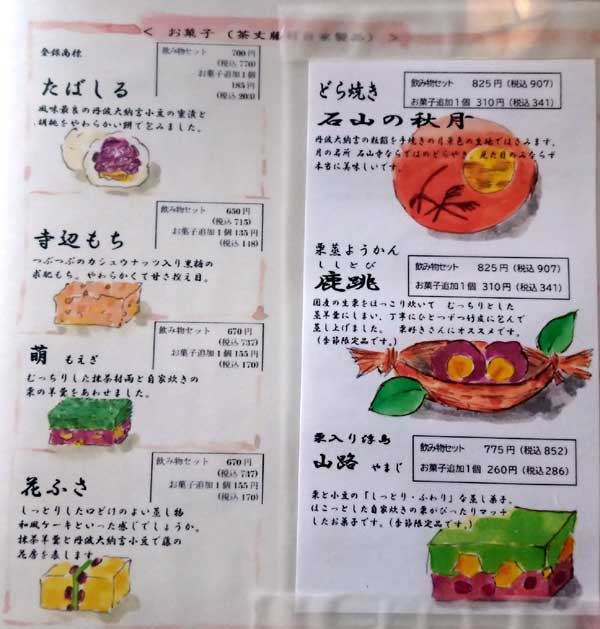 < お菓子 (茶丈藤村自家製品) >
登録商標
飲み物セット 700円
(税込 770)
お菓子追加1個
185円
(税込 203)
たばしる
風味最良の丹波大納言小豆の蜜漬と
胡桃をやわらかい餅で包みました。
飲み物セット 650円
(税込 715)
お菓子追加1個 135円
(税込 148)
寺辺もち
つぶつぶのカシュウナッツ入り黒糖の
求肥もち。やわらかくて甘さ控え目。
飲み物セット 670円
(税込 737)
お菓子追加1個 155円
(税込 170)
萌 もえぎ
むっちりした抹茶村雨と自家炊きの
栗の羊羹をあわせました。
飲み物セット 670円
(税込 737)
お菓子追加1個 155円
(税込 170)
花ふさ
しっとりした口どけのよい蒸し物
和風ケーキといった感じでしょうか。
抹茶羊羹と丹波大納言小豆で藤の
花房を表します。
どら焼き
飲み物セット 825円 (税込 907)
お菓子追加1個 310円 (税込 341)
石山の秋月
丹波大納言の粒餡を手焼きの月景色の生地ではさみます。
月の名所 石山寺ならではのどらやき。見た目のみならず
本当に美味しいです。
栗蒸ようかん
ししとび
鹿跳
飲み物セット 825円 (税込 907)
お菓子追加1個 310円 (税込 341)
国産の生栗をほっこり炊いて むっちりとした
蒸羊羹にしまい、丁寧にひとつずつ竹皮に包んで
蒸し上げました。 栗好きさんにオススメです。
(季節限定品です。)
栗入り浮島
山路 やまじ
飲み物セット 775円 (税込 852)
お菓子追加1個 260円 (税込 286)
栗と小豆の「しっとり・ふわり」な蒸し菓子。
ほこっとした自家炊きの栗がぴったりマッチ
したお菓子です。(季節限定品です。)